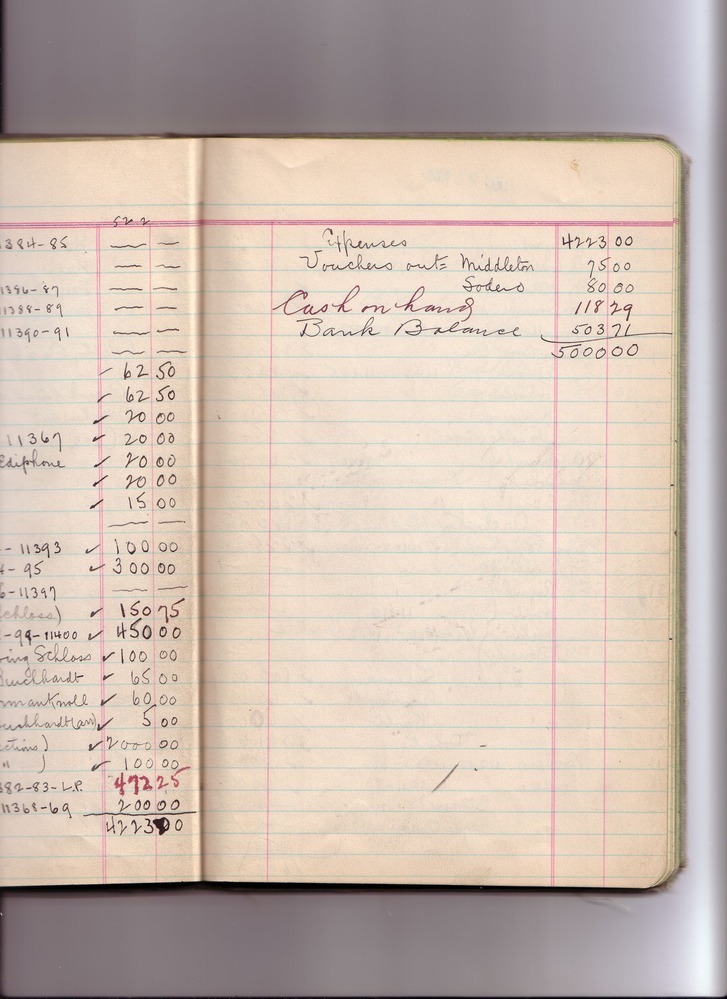 522
384-85
1386-87
11388-89
11390-91
62 50
62 50
20 00
11367 20 00
Ediphone 20 00
20 00
15 00
- 11393 100 00
- 95 300 00
-11397
Schloss) 150 75
-99-11400 450 00
Schloss 100 00
Burckhardt 65 00
Knoll 60 00
5 00
ctions) 2000 00
" ) 100 00
382-83-L.P. 472 25
11368-69 200 00
4223 00
Expenses 4223 00
Vouchers out= Middleton 75 00
Soders 80 00
Cash on hand 118 29
Bank Balance 503 71
5000 00